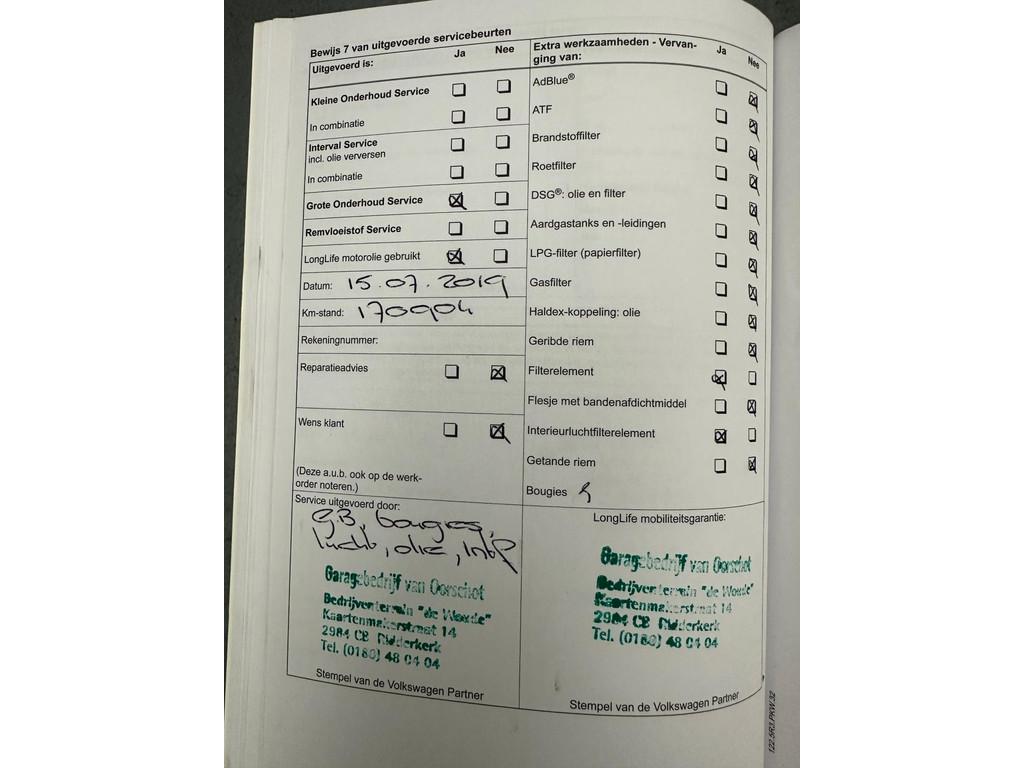 Bewijs 7 van uitgevoerde servicebeurten
Uitgevoerd is: Ja Nee
Kleine Onderhoud Service
In combinatie
Interval Service
incl. olie verversen
In combinatie
Grote Onderhoud Service
Remvloeistof Service
LongLife motorolie gebruikt
Datum: 15.07.2019
Km-stand: 170904
Rekeningnummer:
Reparatieadvies
Wens klant
(Deze a.u.b. ook op de werk-
order noteren.)
Service uitgevoerd door:
G.B, bougies,
lucht, olie,
Garagebedrijf van Oorschot
Bedrijventerrein "de Woude"
Kaartenmakerstraat 14
2984 CB Ridderkerk
Tel. (0180) 48 04 04
Stempel van de Volkswagen Partner
Extra werkzaamheden - Vervan- Ja Nee
ging van:
AdBlue®
ATF
Brandstoffilter
Roetfilter
DSG®: olie en filter
Aardgastanks en -leidingen
LPG-filter (papierfilter)
Gasfilter
Haldex-koppeling: olie
Geribde riem
Filterelement
Flesje met bandenafdichtmiddel
Interieurluchtfilterelement
Getande riem
Bougies
LongLife mobiliteitsgarantie:
Garagebedrijf van Oorschot
Bedrijventerrein "de Woude"
Kaartenmakerstraat 14
2984 CB Ridderkerk
Tel. (0180) 48 04 04
Stempel van de Volkswagen Partner
122.5R3.PKW.32